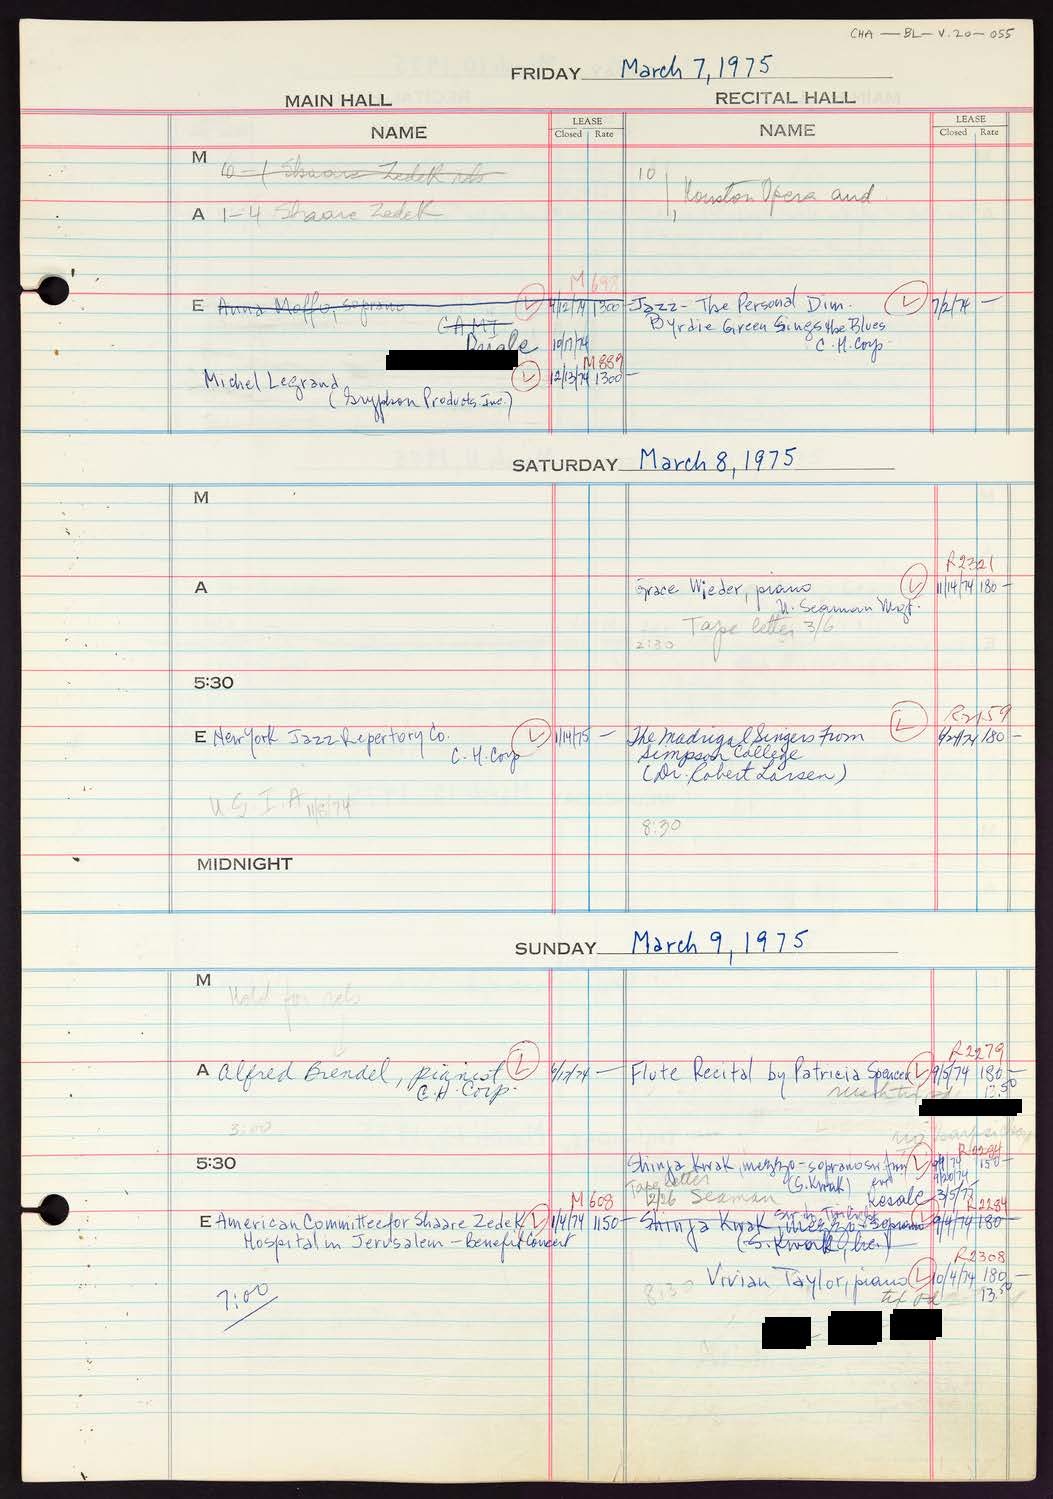 CHA — BL — V.20 — 055
FRIDAY March 7, 1975
MAIN HALL
RECITAL HALL
NAME
LEASE
Closed Rate
NAME
LEASE
Closed Rate
M
Shaare Zedek
10
1, Houston Opera and
A 1-4 Shaare Zedek
M 698
E Anna Moffo, soprano L 4/12/74 1300 —
CAMI
10/17/74
Jazz - The Personal Dim. L 7/2/74 —
Byrdie Green Sings the Blues
C.H. Corp.
M 889
Michel Legrand L 12/13/74 1300 —
(Gryphon Products Inc.)
SATURDAY March 8, 1975
M
A
R2321
Grace Wieder, piano L 11/14/74 180 —
N. Seaman Mgt.
Tape letter 3/6
2:30
5:30
E New York Jazz Repertory Co. L 1/14/75 —
C.H. Corp
U.S.I.A 11/8/74
R2159
The Madrigal Singers From L 180 —
Simpson College
(Dr. Robert Larsen)
8:30
MIDNIGHT
SUNDAY March 9, 1975
M
Hold for
A Alfred Brendel, pianist L —
C.H. Corp.
3:00
R2279
Flute Recital by Patricia Spencer L 9/5/74 180 —
13.50
no
5:30
R2284
Shinja Kwak, mezzo-soprano L 150 —
(S. Kwak)
Tape letter
2/26 Seaman
3/5/75
M 608
E American Committee for Shaare Zedek L 1/4/74 1150 —
Hospital in Jerusalem — Benefit Concert
7:00
R2284
Shinja Kwak, mezzo-soprano L 9/4/74 180 —
(S. Kwak
R2308
8:30 Vivian Taylor, piano L 10/4/74 180 —
13.50